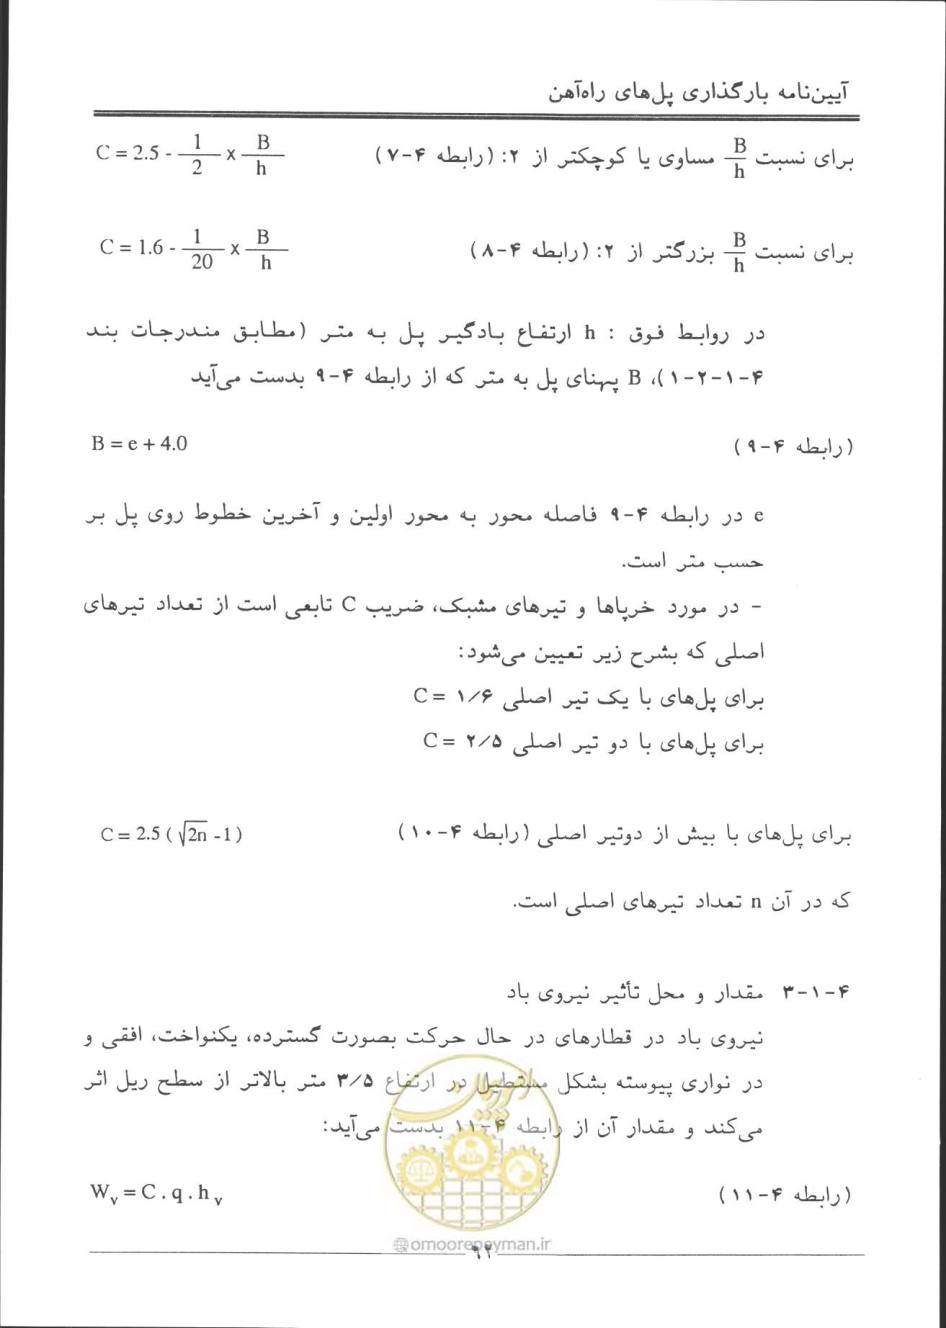 آیین‌نامه بارگذاری پل‌های راه‌آهن
برای نسبت B/h مساوی یا کوچکتر از ۲: (رابطه ۴-۷) C = 2.5 - 1/2 x B/h
برای نسبت B/h بزرگتر از ۲: (رابطه ۴-۸) C = 1.6 - 1/20 x B/h
در روابط فوق : h ارتفاع بادگیر پل به متر (مطابق مندرجات بند
۴-۱-۲-۱)، B پهنای پل به متر که از رابطه ۴-۹ بدست می‌آید
(رابطه ۴-۹) B = e + 4.0
e در رابطه ۴-۹ فاصله محور به محور اولین و آخرین خطوط روی پل بر
حسب متر است.
- در مورد خرپاها و تیرهای مشبک، ضریب C تابعی است از تعداد تیرهای
اصلی که بشرح زیر تعیین می‌شود:
برای پل‌های با یک تیر اصلی C = ۱/۶
برای پل‌های با دو تیر اصلی C = ۲/۵
برای پل‌های با بیش از دوتیر اصلی (رابطه ۴-۱۰) C = 2.5 ( √2n - 1 )
که در آن n تعداد تیرهای اصلی است.
۴-۱-۳ مقدار و محل تأثیر نیروی باد
نیروی باد در قطارهای در حال حرکت بصورت گسترده، یکنواخت، افقی و
در نواری پیوسته بشکل مستطیل در ارتفاع ۳/۵ متر بالاتر از سطح ریل اثر
می‌کند و مقدار آن از رابطه ۴-۱۱ بدست می‌آید:
(رابطه ۴-۱۱) Wv = C . q . hv
@omoorepeyman.ir